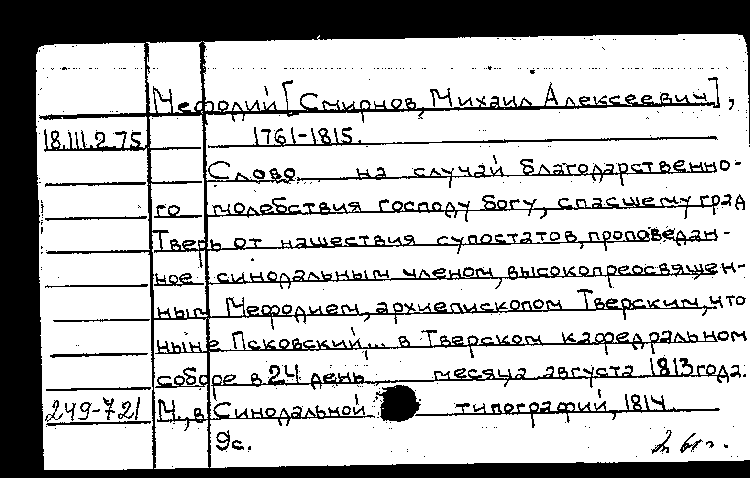 Мефодий [Смирнов, Михаил Алексеевич],
18.III.2.75 1761-1815.
Слово на случай благодарственно-
го молебствия господу богу, спасшему град
Тверь от нашествия супостатов, проповедан-
ное синодальным членом, высокопреосвящен-
ным Мефодием, архиепископом Тверским, что
ныне Псковский,.. в Тверском кафедральном
соборе в 24 день месяца августа 1813 года.
249-721 М., в Синодальной типографий, 1814.
9с.